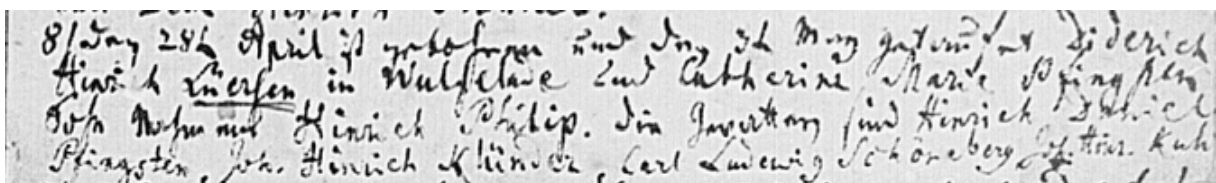 8/ den 28t April ist gebohren und den 3t May getauft Diderich
Hinrich Lüersen in Wulfelade und Catherine Marie Pfingsten
Sohn Nahmens Hinrich Philip. die Gevattern sind Hinrich Daniel
Pfingsten, Joh. Hinrich Klünder, Carl Ludewig Schöneberg, Joh. Hinr. Kuh